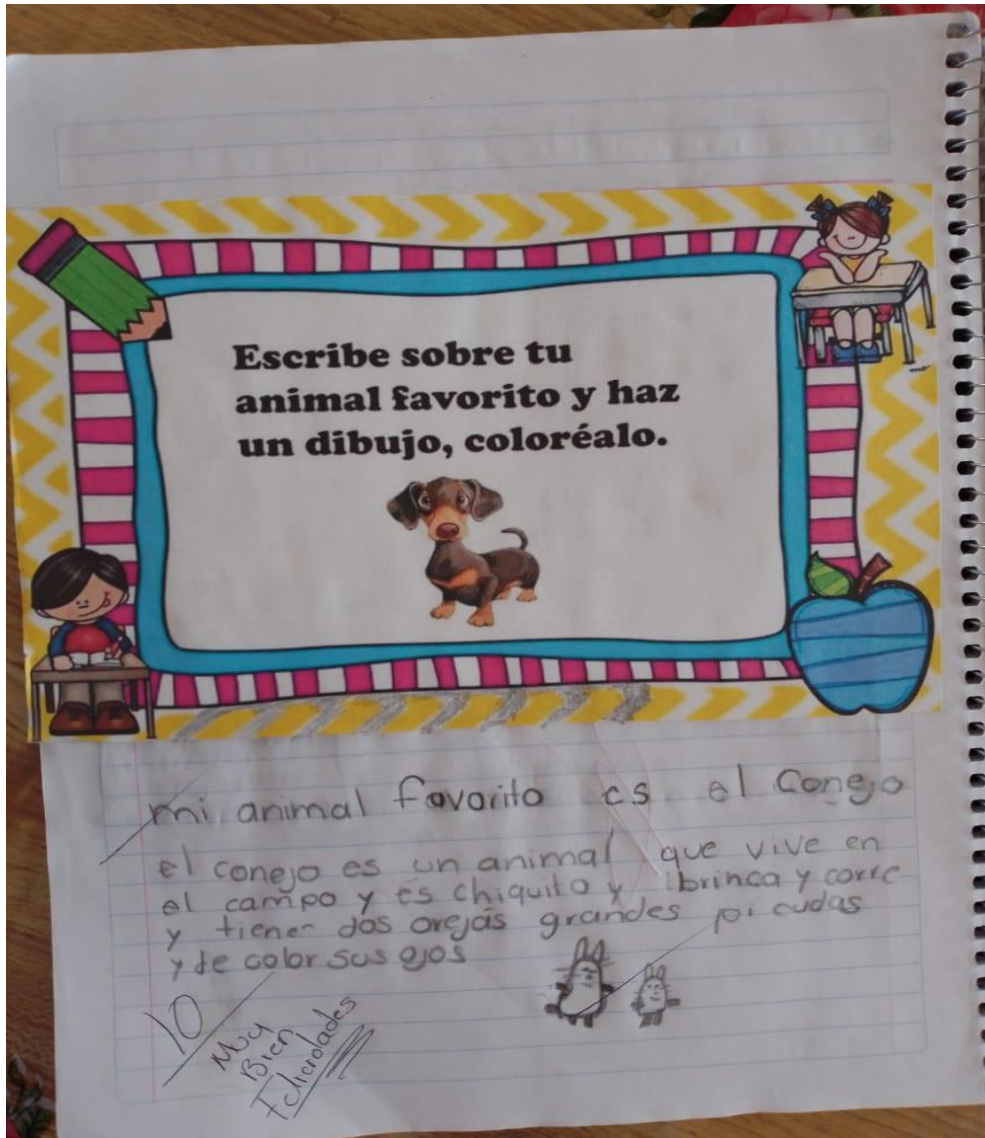 Escribe sobre tu
animal favorito y haz
un dibujo, coloréalo.
mi animal favorito es el Conejo
el conejo es un animal que vive en
el campo y es chiquito y brinca y corre
y tienen dos orejas grandes picudas
y de color sus ojos
10
Muy
Bien
Felicidades